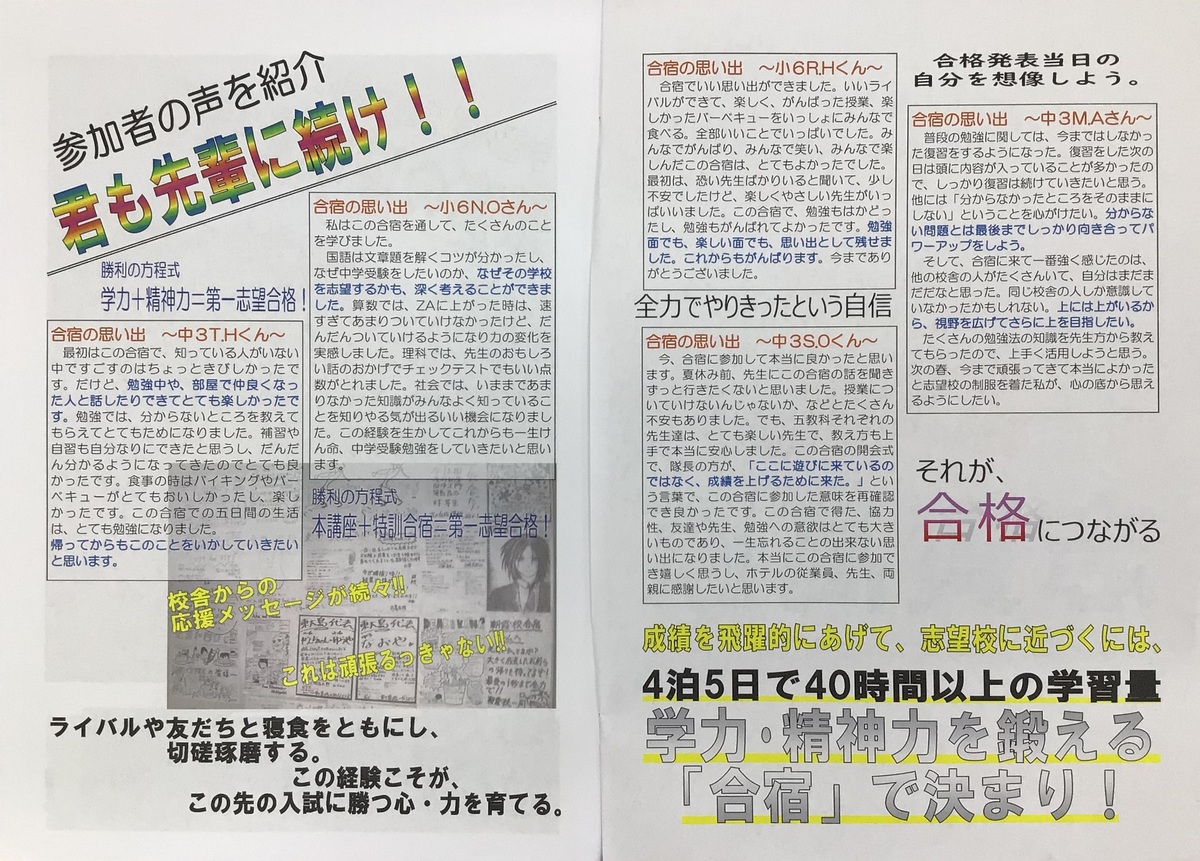 参加者の声を紹介
君も先輩に続け！！
勝利の方程式
学力＋精神力＝第一志望合格！
合宿の思い出　～中３T.Hくん～
　最初はこの合宿で、知っている人がいない
中ですごすのはちょっときびしかったで
す。だけど、勉強中や、部屋で仲良くなっ
た人と話したりできてとても楽しかったで
す。勉強では、分からないところを教えて
もらえてとてもためになりました。補習や
自習も自分なりにできたと思うし、だんだ
ん分かるようになってきたのでとても良
かったです。食事の時はバイキングやバー
ベキューがとてもおいしかったし、楽し
かったです。この合宿での五日間の生活
は、とても勉強になりました。
帰ってからもこのことをいかしていきたい
と思います。
合宿の思い出　～小６N.Oさん～
　私はこの合宿を通して、たくさんのこと
を学びました。
　国語は文章題を解くコツが分かったし、
なぜ中学受験をしたいのか、なぜその学校
を志望するかも、深く考えることができま
した。算数では、ZAに上がった時は、速
すぎてあまりついていけなかったけど、だ
んだんついていけるようになり力の変化を
実感しました。理科では、先生のおもしろ
い話のおかげでチェックテストでもいい点
数がとれました。社会では、いままであま
りなかった知識がみんなよく知っているこ
とを知りやる気が出るいい機会になりまし
た。この経験を生かしてこれからも一生け
ん命、中学受験勉強をしていきたいと思い
ます。
勝利の方程式
本講座＋特訓合宿＝第一志望合格！
校舎からの
応援メッセージが続々!!
これは頑張るっきゃない!!
ライバルや友だちと寝食をともにし、
切磋琢磨する。
この経験こそが、
この先の入試に勝つ心・力を育てる。
合宿の思い出　～小６R.Hくん～
　合宿でいい思い出ができました。いいライ
バルができて、楽しく、がんばった授業、楽
しかったバーベキューをいっしょにみんなで
食べる。全部いいことでいっぱいでした。み
んなでがんばり、みんなで笑い、みんなで楽
しんだこの合宿は、とてもよかったでした。
最初は、恐い先生ばかりいると聞いて、少し
不安でしたけど、楽しくやさしい先生がいっ
ぱいいました。この合宿で、勉強もはかどっ
たし、勉強もがんばれてよかったです。勉強
面でも、楽しい面でも、思い出として残せま
した。これからもがんばります。今までありが
とうございました。
全力でやりきったという自信
合宿の思い出　～中３S.Oくん～
　今、合宿に参加して本当に良かったと思い
ます。夏休み前、先生にこの合宿の話を聞き
ずっと行きたくないと思いました。授業につ
いていけないんじゃないか、などとたくさん
不安もありました。でも、五教科それぞれの
先生達は、とても楽しい先生で、教え方も上
手で本当に安心しました。この合宿の開会式
で、隊長の方が、「ここに遊びに来ているの
ではなく、成績を上げるために来た。」とい
う言葉で、この合宿に参加した意味を再確認
でき良かったです。この合宿で得た、協力
性、友達や先生、勉強への意欲はとても大き
いものであり、一生忘れることの出来ない思
い出になりました。本当にこの合宿に参加で
き嬉しく思うし、ホテルの従業員、先生、両
親に感謝したいと思います。
合格発表当日の
自分を想像しよう。
合宿の思い出　～中３M.Aさん～
　普段の勉強に関しては、今まではしなかっ
た復習をするようになった。復習をした次の
日は頭に内容が入っていることが多かったの
で、しっかり復習は続けていきたいと思う。
他には「分からなかったところをそのままに
しない」ということを心がけたい。分からな
い問題とは最後までしっかり向き合ってパ
ワーアップをしよう。
　そして、合宿に来て一番強く感じたのは、
他の校舎の人がたくさんいて、自分はまだま
だだなと思った。同じ校舎の人しか意識して
いなかったかもしれない。上には上がいるか
ら、視野を広げてさらに上を目指したい。
　たくさんの勉強法の知識を先生方から教え
てもらったので、上手く活用しようと思う。
次の春、今まで頑張ってきて本当によかった
と志望校の制服を着た私が、心の底から思え
るようにしたい。
それが、
合格につながる
成績を飛躍的にあげて、志望校に近づくには、
4泊5日で40時間以上の学習量
学力・精神力を鍛える
「合宿」で決まり！